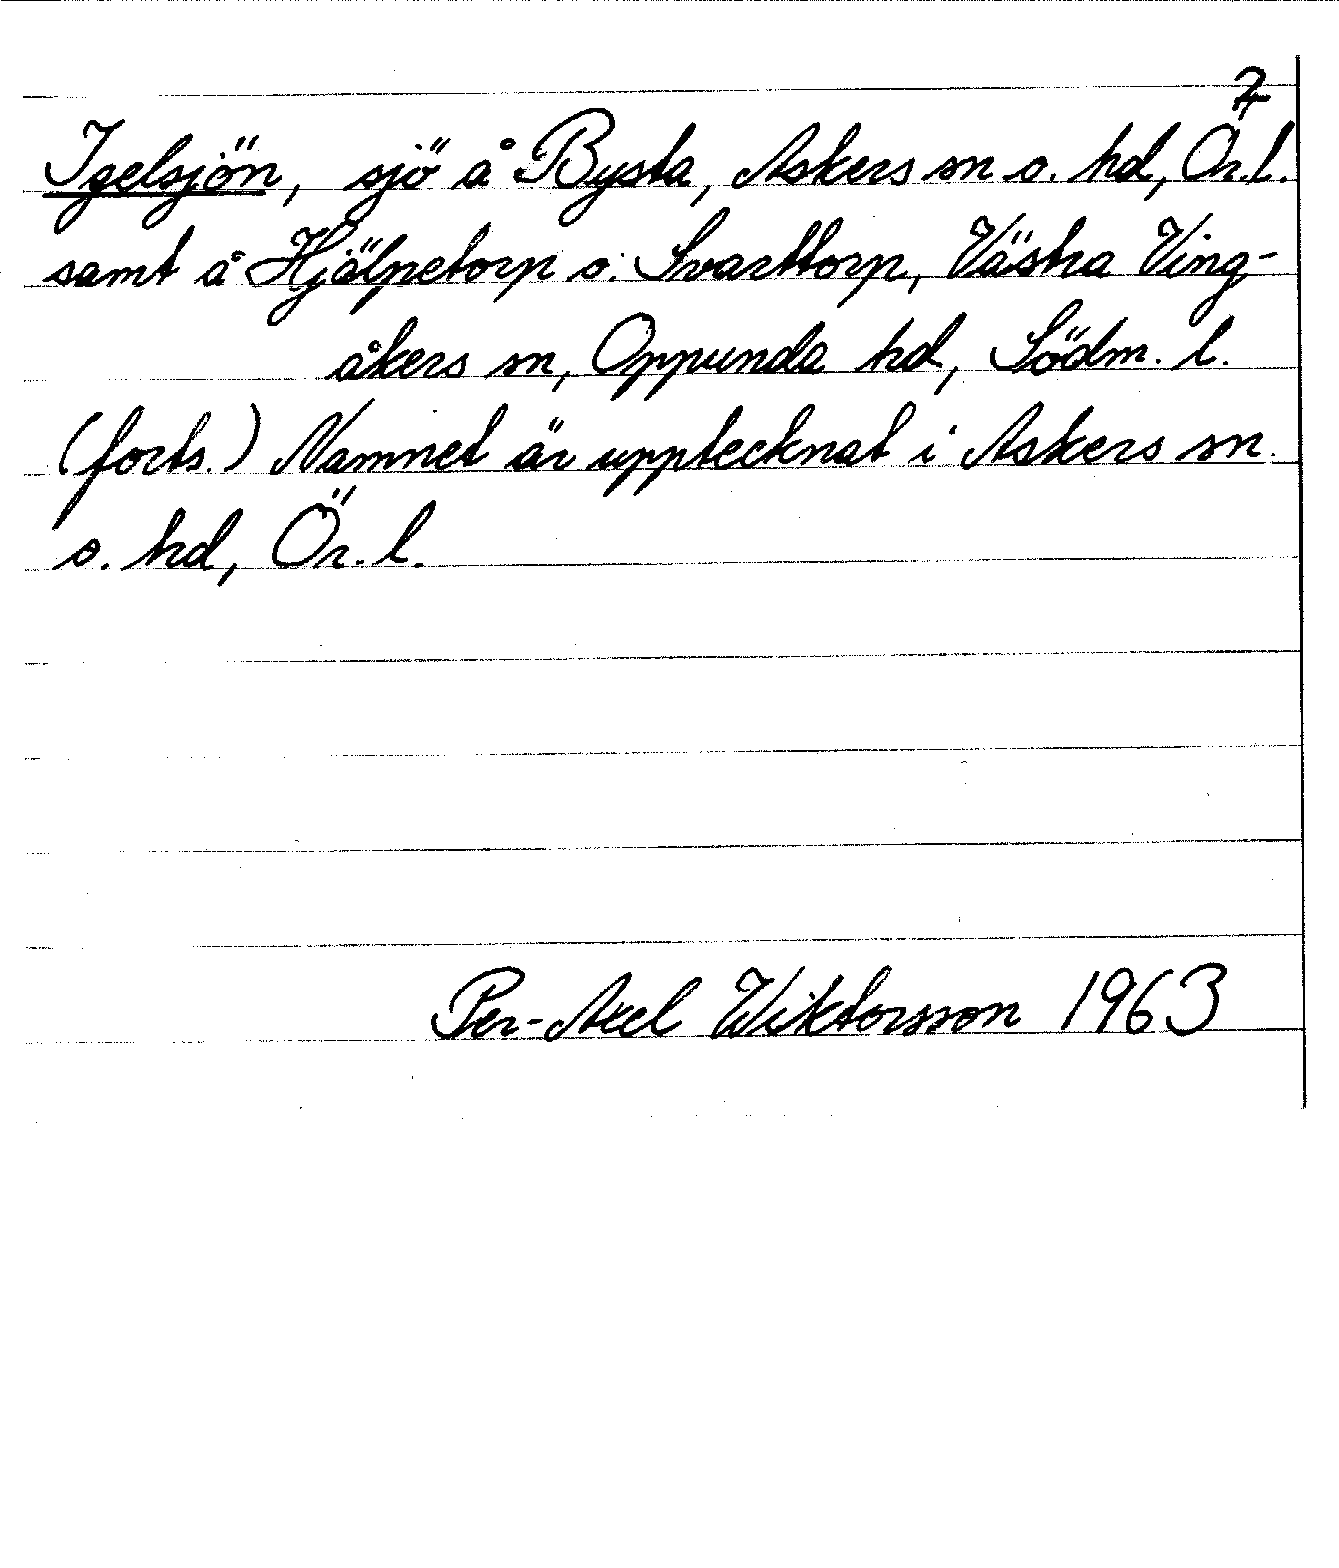 2
Igelsjön, sjö å Bysta, Askers sn o. hd, Ör.l.
samt å Hjälpetorp o. Svarttorp, Västra Ving-
åkers sn, Oppunda hd, Södm. l.
(forts.) Namnet är upptecknat i Askers sn
o. hd, Ör. l.
Per-Axel Wiktorsson 1963